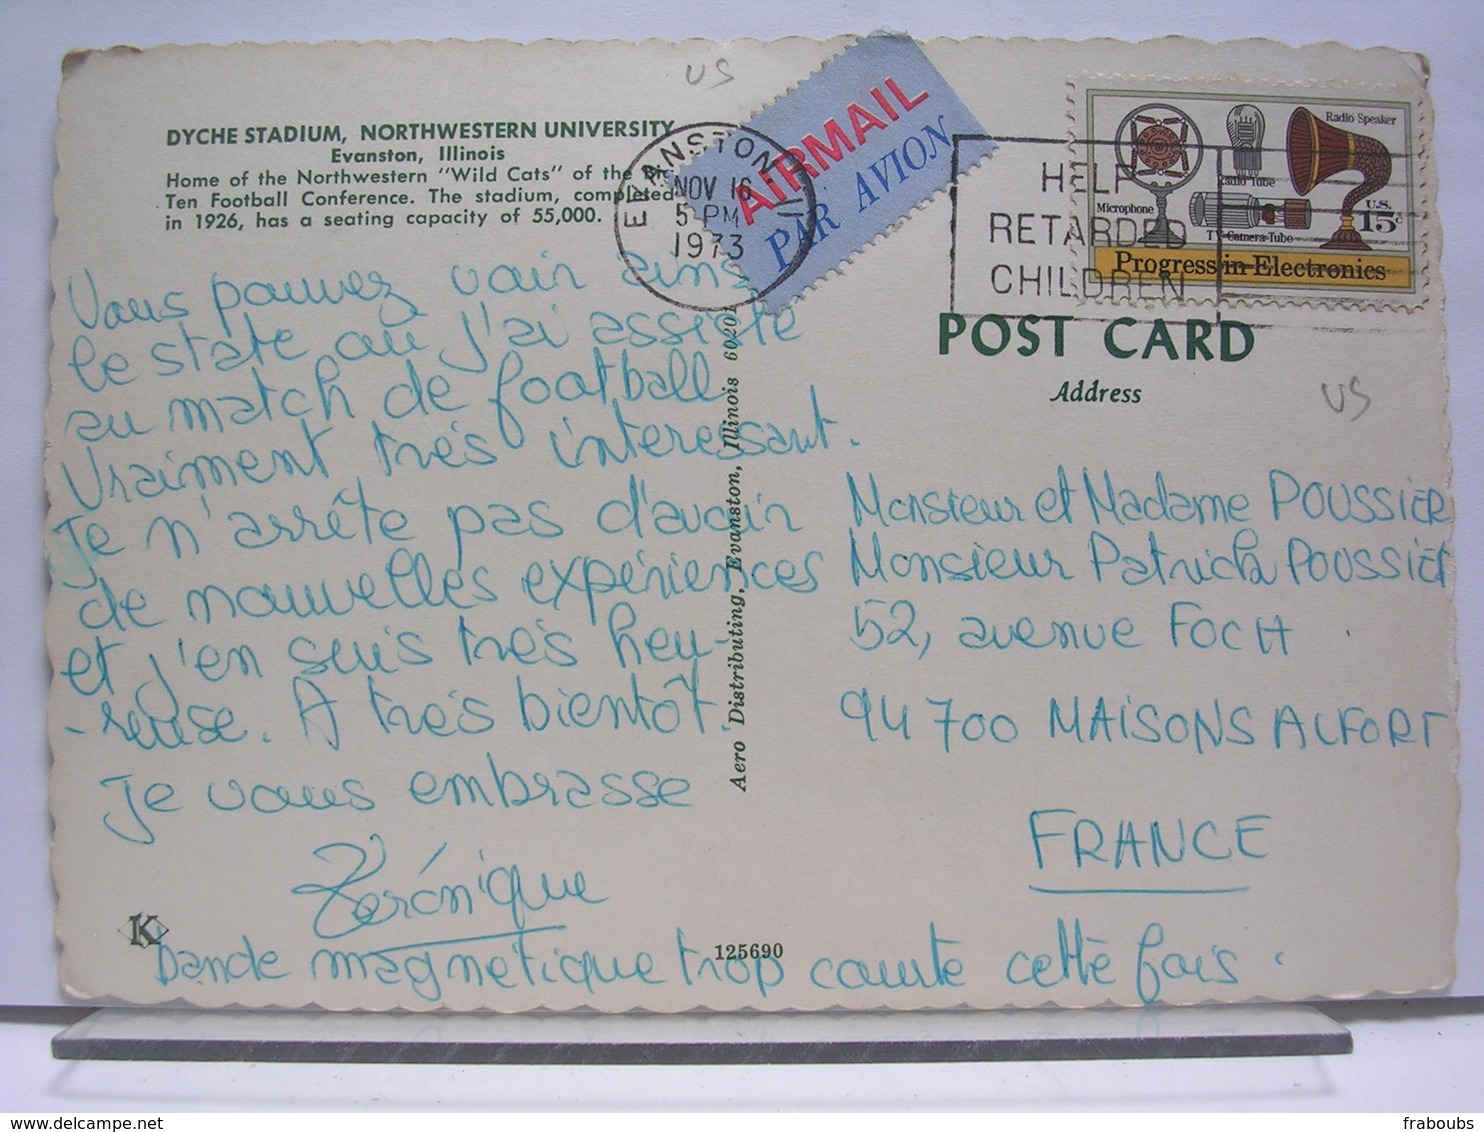 US
DYCHE STADIUM, NORTHWESTERN UNIVERSITY
Evanston, Illinois
Home of the Northwestern "Wild Cats" of the Big
Ten Football Conference. The stadium, completed
in 1926, has a seating capacity of 55,000.
EVANSTON IL
NOV 16
5 PM
1973
AIRMAIL
PAR AVION
HELP
RETARDED
CHILDREN
Radio Speaker
Radio Tube
Microphone
TV Camera Tube
U.S.
15c
Progress in Electronics
POST CARD
Address
US
Vous pouvez voir ainsi
le state ou j'ai assisté
au match de football
Vraiment très interessant.
Je n'arrête pas d'avoir
de nouvelles expériences
et j'en suis très heu-
-reuse. A très bientôt.
Je vous embrasse
Véronique
Bande magnetique trop courte cette fois.
Monsieur et Madame POUSSIER
Monsieur Patrick POUSSIER
52, avenue FOCH
94700 MAISONS ALFORT
FRANCE
Aero Distributing, Evanston, Illinois 60201
K
125690
delcampe.net
fraboubs